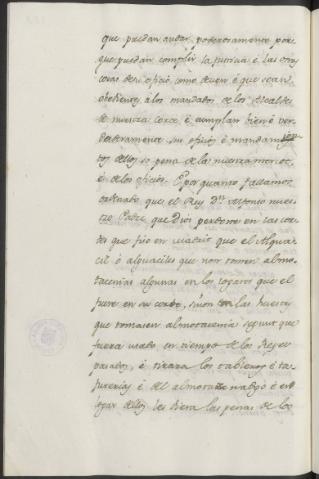 que puedan andar poderosamente por e
que puedan complir la justicia é las otras
cosas de su oficio como deven é que sean
obedientes á los mandados de los Alcaldes
de nuestra Corte é cumplan bien é ver-
daderamente su oficio é mandamien-
tos dellos so pena de la nuestra merced,
é de los oficios. E por quanto fallamos
que el Rey Dn. Alfonso nues-
tro Padre que Dios perdone en las cor-
tes que fizo en Madrid que el Alguа-
cil é alguaciles que non tomen almo-
tacenias algunas en los logares que el
fuere en su corte, sinon en las huestes
que tomasen almotacenia segunt que
fuera usado en tiempo de los Reyes
pasados, é tirara los tableros é ta-
furerias é el almotacenadgo é en
logar dellos les diera las penas de los